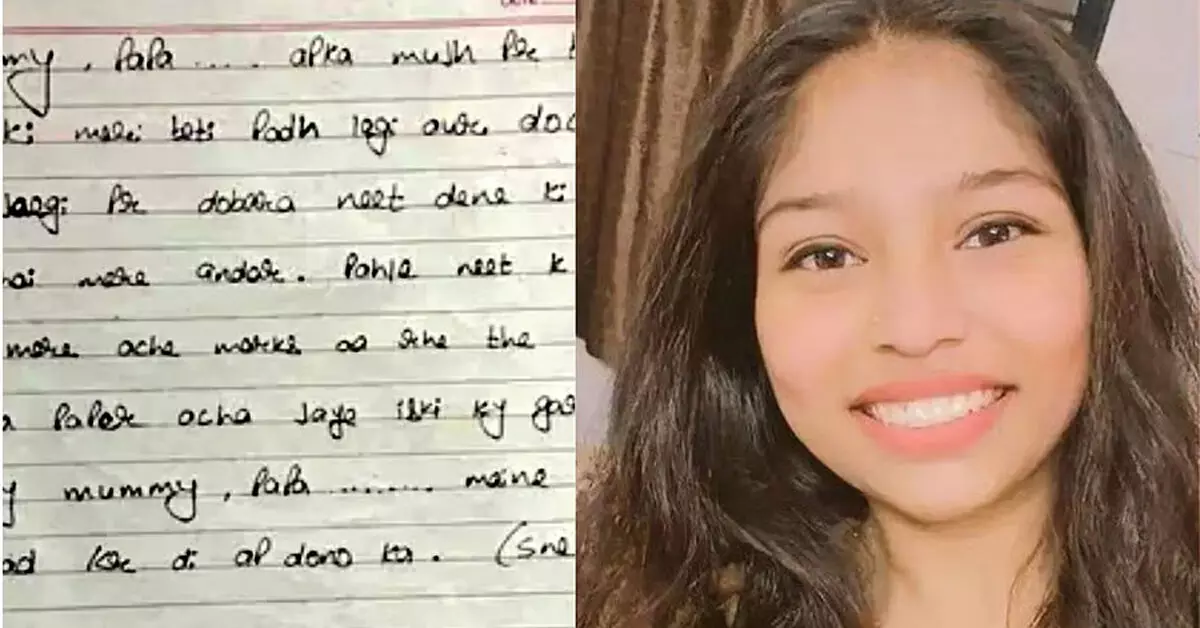 my, PaPa ..... apka mujh Par
ki meri beti Padh legi aur doc
jaegi Par dobara neet dene ki
hai mere andar. Pahle neet k
mere ache marks aa rhe the
Paper acha jaye iski ky gar
y mummy, PaPa ......... maine
ad kar di ap dono ka. (Sne